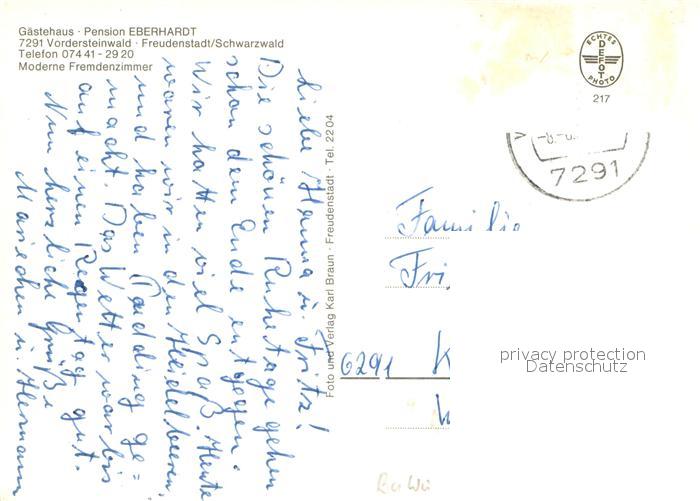 Gästehaus · Pension EBERHARDT
7291 Vordersteinwald · Freudenstadt/Schwarzwald
Telefon 07441 - 2920
Moderne Fremdenzimmer
Liebe Hanna u. Fritz!
Die schönen Ruhetage gehen
schon dem Ende entgegen.
Wir hatten viel Spaß. Heute
waren wir in den Heidelbeeren,
und haben Pudding ge=
macht. Das Wetter war bis
auf einen Regentag gut.
Nun herzliche Grüße
Mariechen u. Hermann
Foto und Verlag Karl Braun · Freudenstadt · Tel. 2204
ECHTES
DEFOT
PHOTO
217
7291
Familie
Fri
6291 K
privacy protection
Datenschutz
BaWü